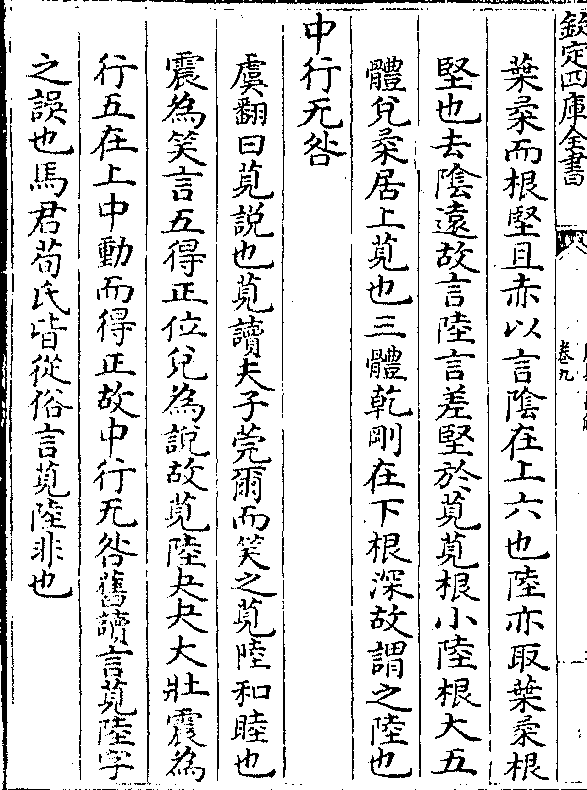 欽定四庫全書
卷九
葉柔而根堅且赤以言陰在上六也陸亦取葉柔根
堅也去陰遠故言陸言差堅於莧莧根小陸根大五
體兌柔居上莧也三體乾剛在下根深故謂之陸也
中行无咎
虞翻曰莧説也莧讀夫子莞爾而笑之莧陸和睦也
震為笑言五得正位兌為説故莧陸夬夬大壯震為
行五在上中動而得正故中行无咎舊讀言莧陸字
之誤也馬君荀氏皆從俗言莧陸非也